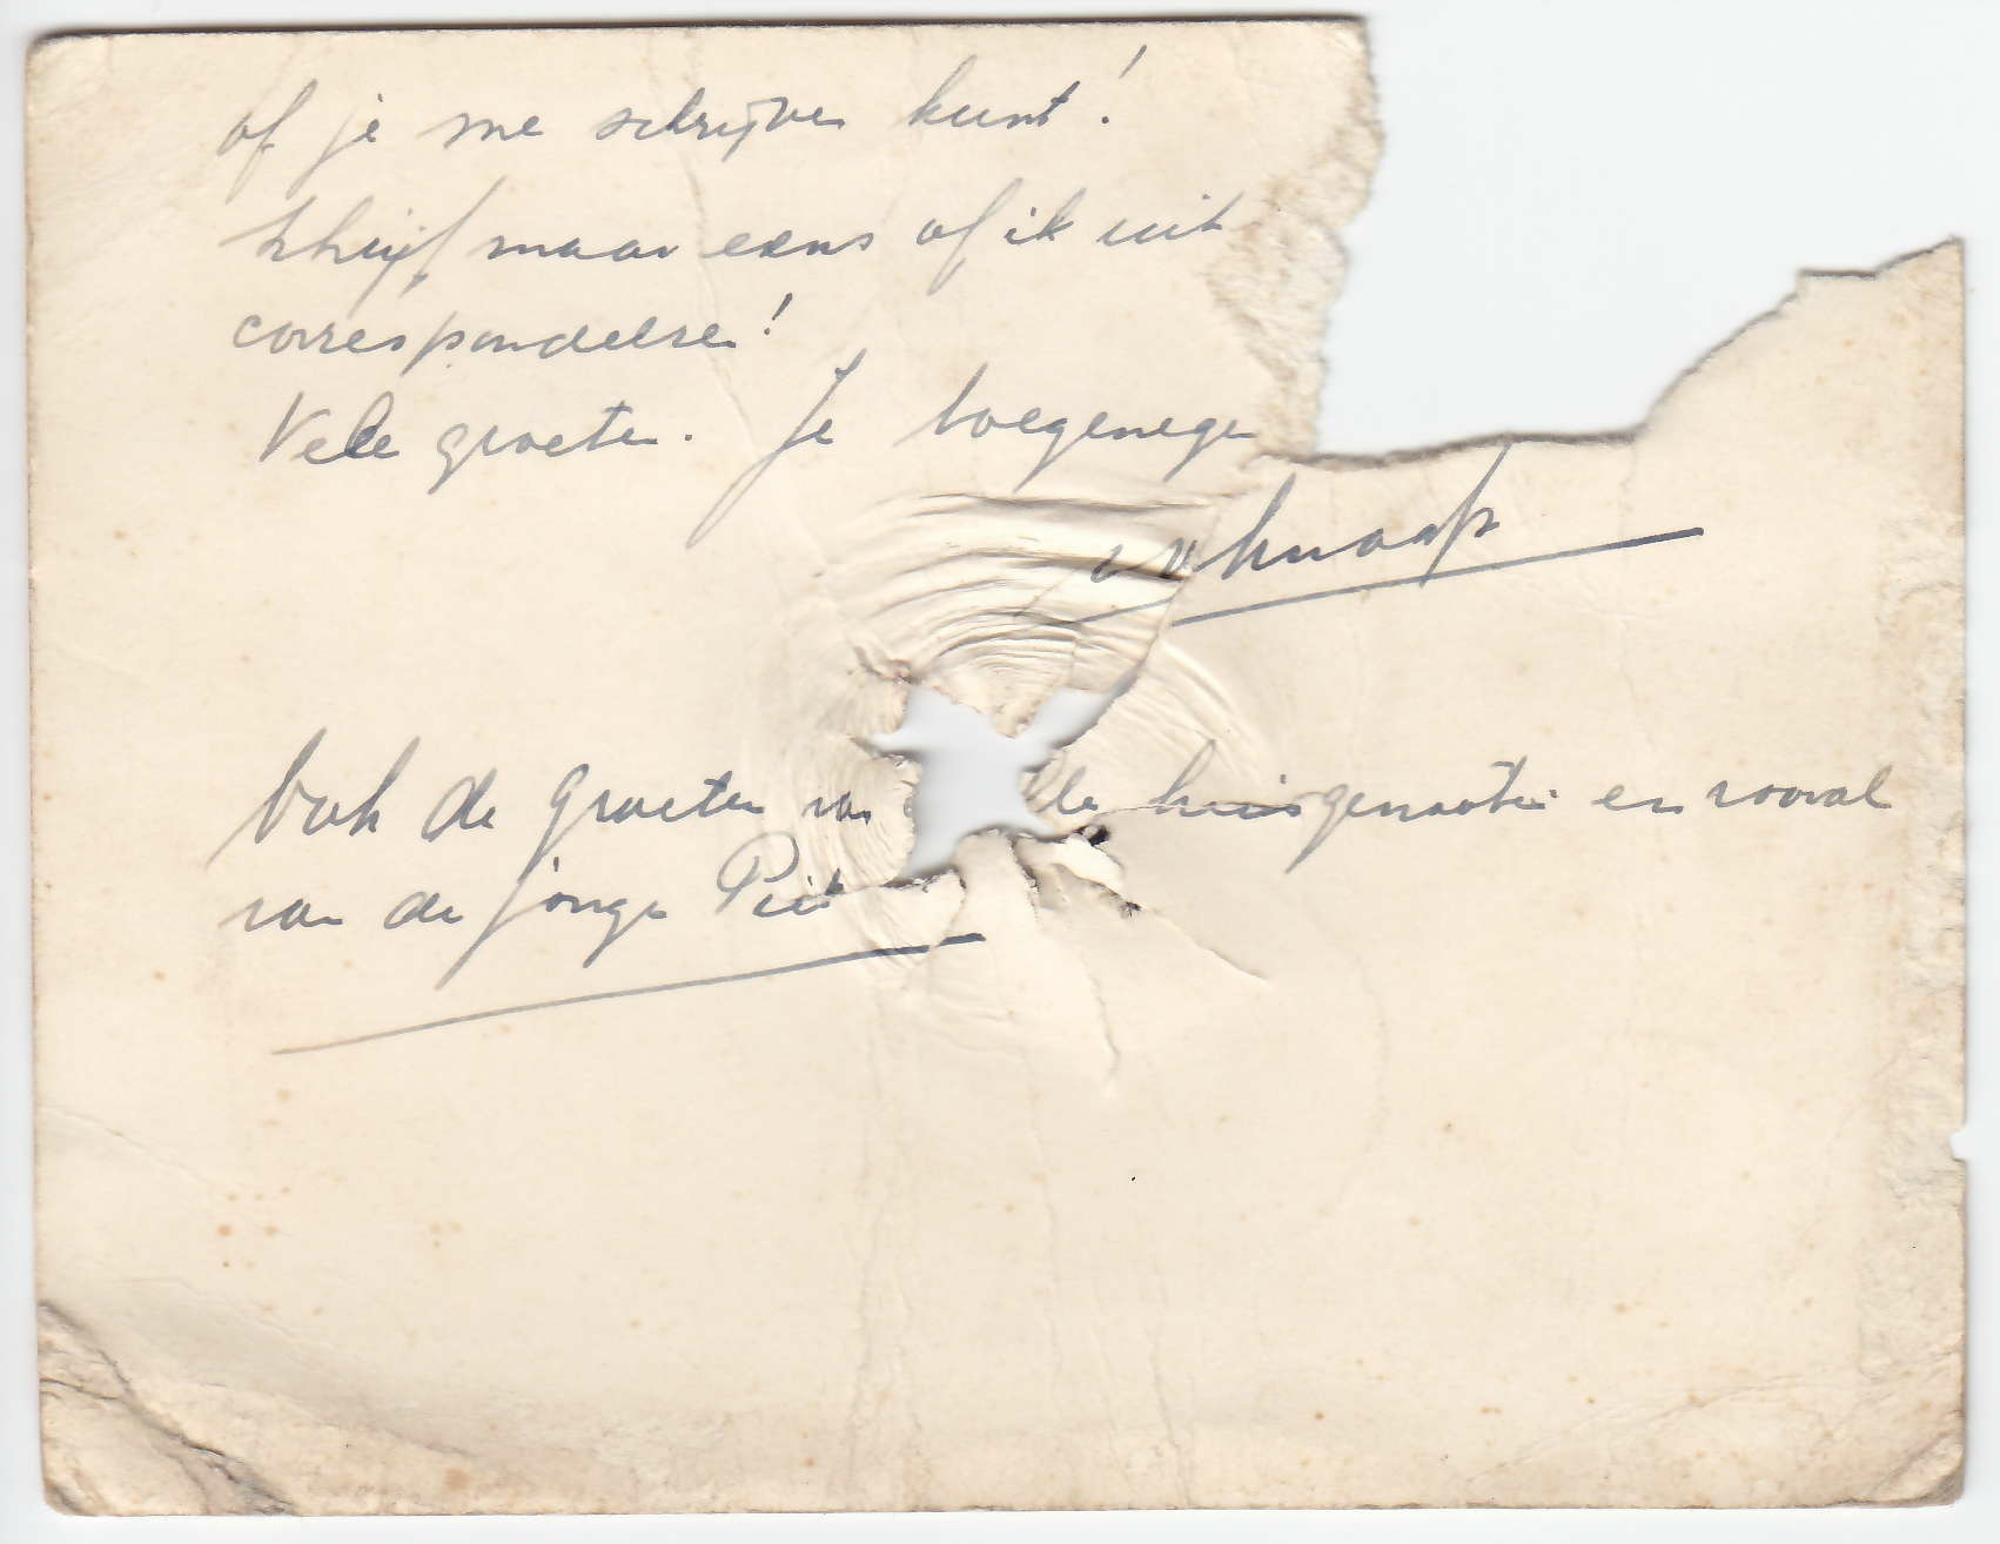 of je me schrijven kunt!
Schrijf maar eens of ik uit
correspondeeren!
Vele groeten. Je toegenegen
Knaap
Ook de groeten van alle huisgenooten en vooral
van de jonge Piet